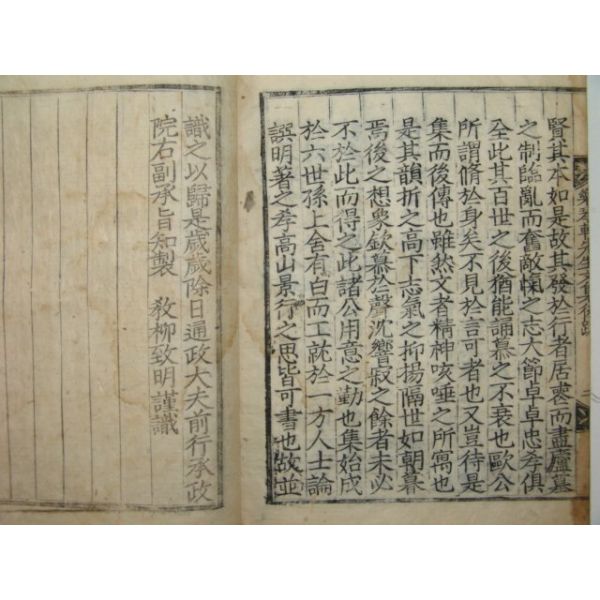 賢其本如是故其發於行者居喪而盡廬墓
之制臨亂而奮敵愾之志大節卓卓忠孝俱
全此其百世之後猶能誦慕之不衰也歐公
所謂脩於身矣不見於言可者也又豈待是
集而後傳也雖然文者精神咳唾之所寓也
是其韻折之高下志氣之抑揚隔世如朝暮
焉後之想象欽慕於聲沈響寂之餘者未必
不於此而得之此諸公用意之勤也集始成
於六世孫上舍有白而工訖於一方人士論
譔明著之孝高山景行之思皆可書也故並
識之以歸是歲歲除日通政大夫前行承政
院右副承旨知製 敎柳致明謹識